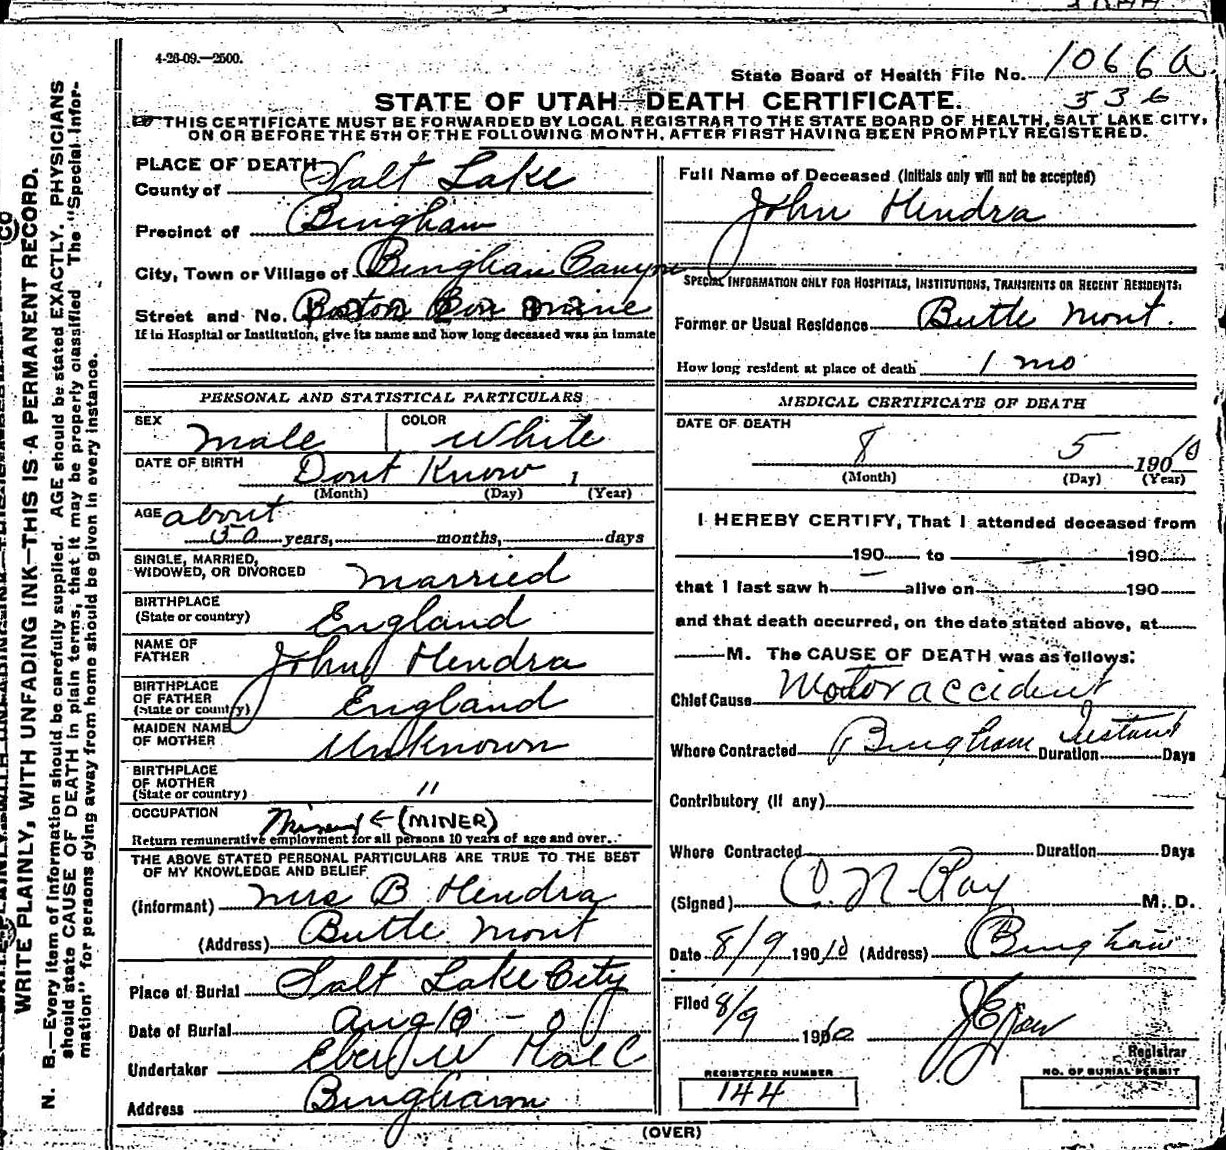 4-26-09.—2500.
State Board of Health File No. 1066 a
536
STATE OF UTAH—DEATH CERTIFICATE.
THIS CERTIFICATE MUST BE FORWARDED BY LOCAL REGISTRAR TO THE STATE BOARD OF HEALTH, SALT LAKE CITY,
ON OR BEFORE THE 5TH OF THE FOLLOWING MONTH, AFTER FIRST HAVING BEEN PROMPTLY REGISTERED.
PLACE OF DEATH
County of Salt Lake
Precinct of Bingham
City, Town or Village of Bingham Canyon
Street and No. Boston Con Mine
If in Hospital or Institution, give its name and how long deceased was an inmate
PERSONAL AND STATISTICAL PARTICULARS
SEX Male COLOR White
DATE OF BIRTH Dont Know 1
(Month) (Day) (Year)
AGE about
50 years, months, days
SINGLE, MARRIED,
WIDOWED, OR DIVORCED Married
BIRTHPLACE
(State or country) England
NAME OF
FATHER John Hendra
BIRTHPLACE
OF FATHER
(State or country) England
MAIDEN NAME
OF MOTHER Unknown
BIRTHPLACE
OF MOTHER
(State or country) "
OCCUPATION Miner ← (MINER)
Return remunerative employment for all persons 10 years of age and over.
THE ABOVE STATED PERSONAL PARTICULARS ARE TRUE TO THE BEST
OF MY KNOWLEDGE AND BELIEF
(Informant) Mrs B Hendra
(Address) Butte Mont
Place of Burial Salt Lake City
Date of Burial Aug
Undertaker Eber W Hall
Address Bingham
Full Name of Deceased (Initials only will not be accepted)
John Hendra
SPECIAL INFORMATION ONLY FOR HOSPITALS, INSTITUTIONS, TRANSIENTS OR RECENT RESIDENTS:
Former or Usual Residence Butte Mont.
How long resident at place of death 1 mo
MEDICAL CERTIFICATE OF DEATH
DATE OF DEATH
8 5 1910
(Month) (Day) (Year)
I HEREBY CERTIFY, That I attended deceased from
190 to 190
that I last saw h alive on 190
and that death occurred, on the date stated above, at
M. The CAUSE OF DEATH was as follows:
Chief Cause Motor accident
Where Contracted Bingham Duration Instant Days
Contributory (If any)
Where Contracted Duration Days
(Signed) C. N. Ray M. D.
Date 8/9 1910 (Address) Bingham
Filed 8/9 1910
Registrar
REGISTERED NUMBER
144
NO. OF BURIAL PERMIT
(OVER)
WRITE PLAINLY, WITH UNFADING INK—THIS IS A PERMANENT RECORD.
N. B.—Every item of information should be carefully supplied. AGE should be stated EXACTLY. PHYSICIANS
should state CAUSE OF DEATH in plain terms, that it may be properly classified. The "Special Infor-
mation" for persons dying away from home should be given in every instance.